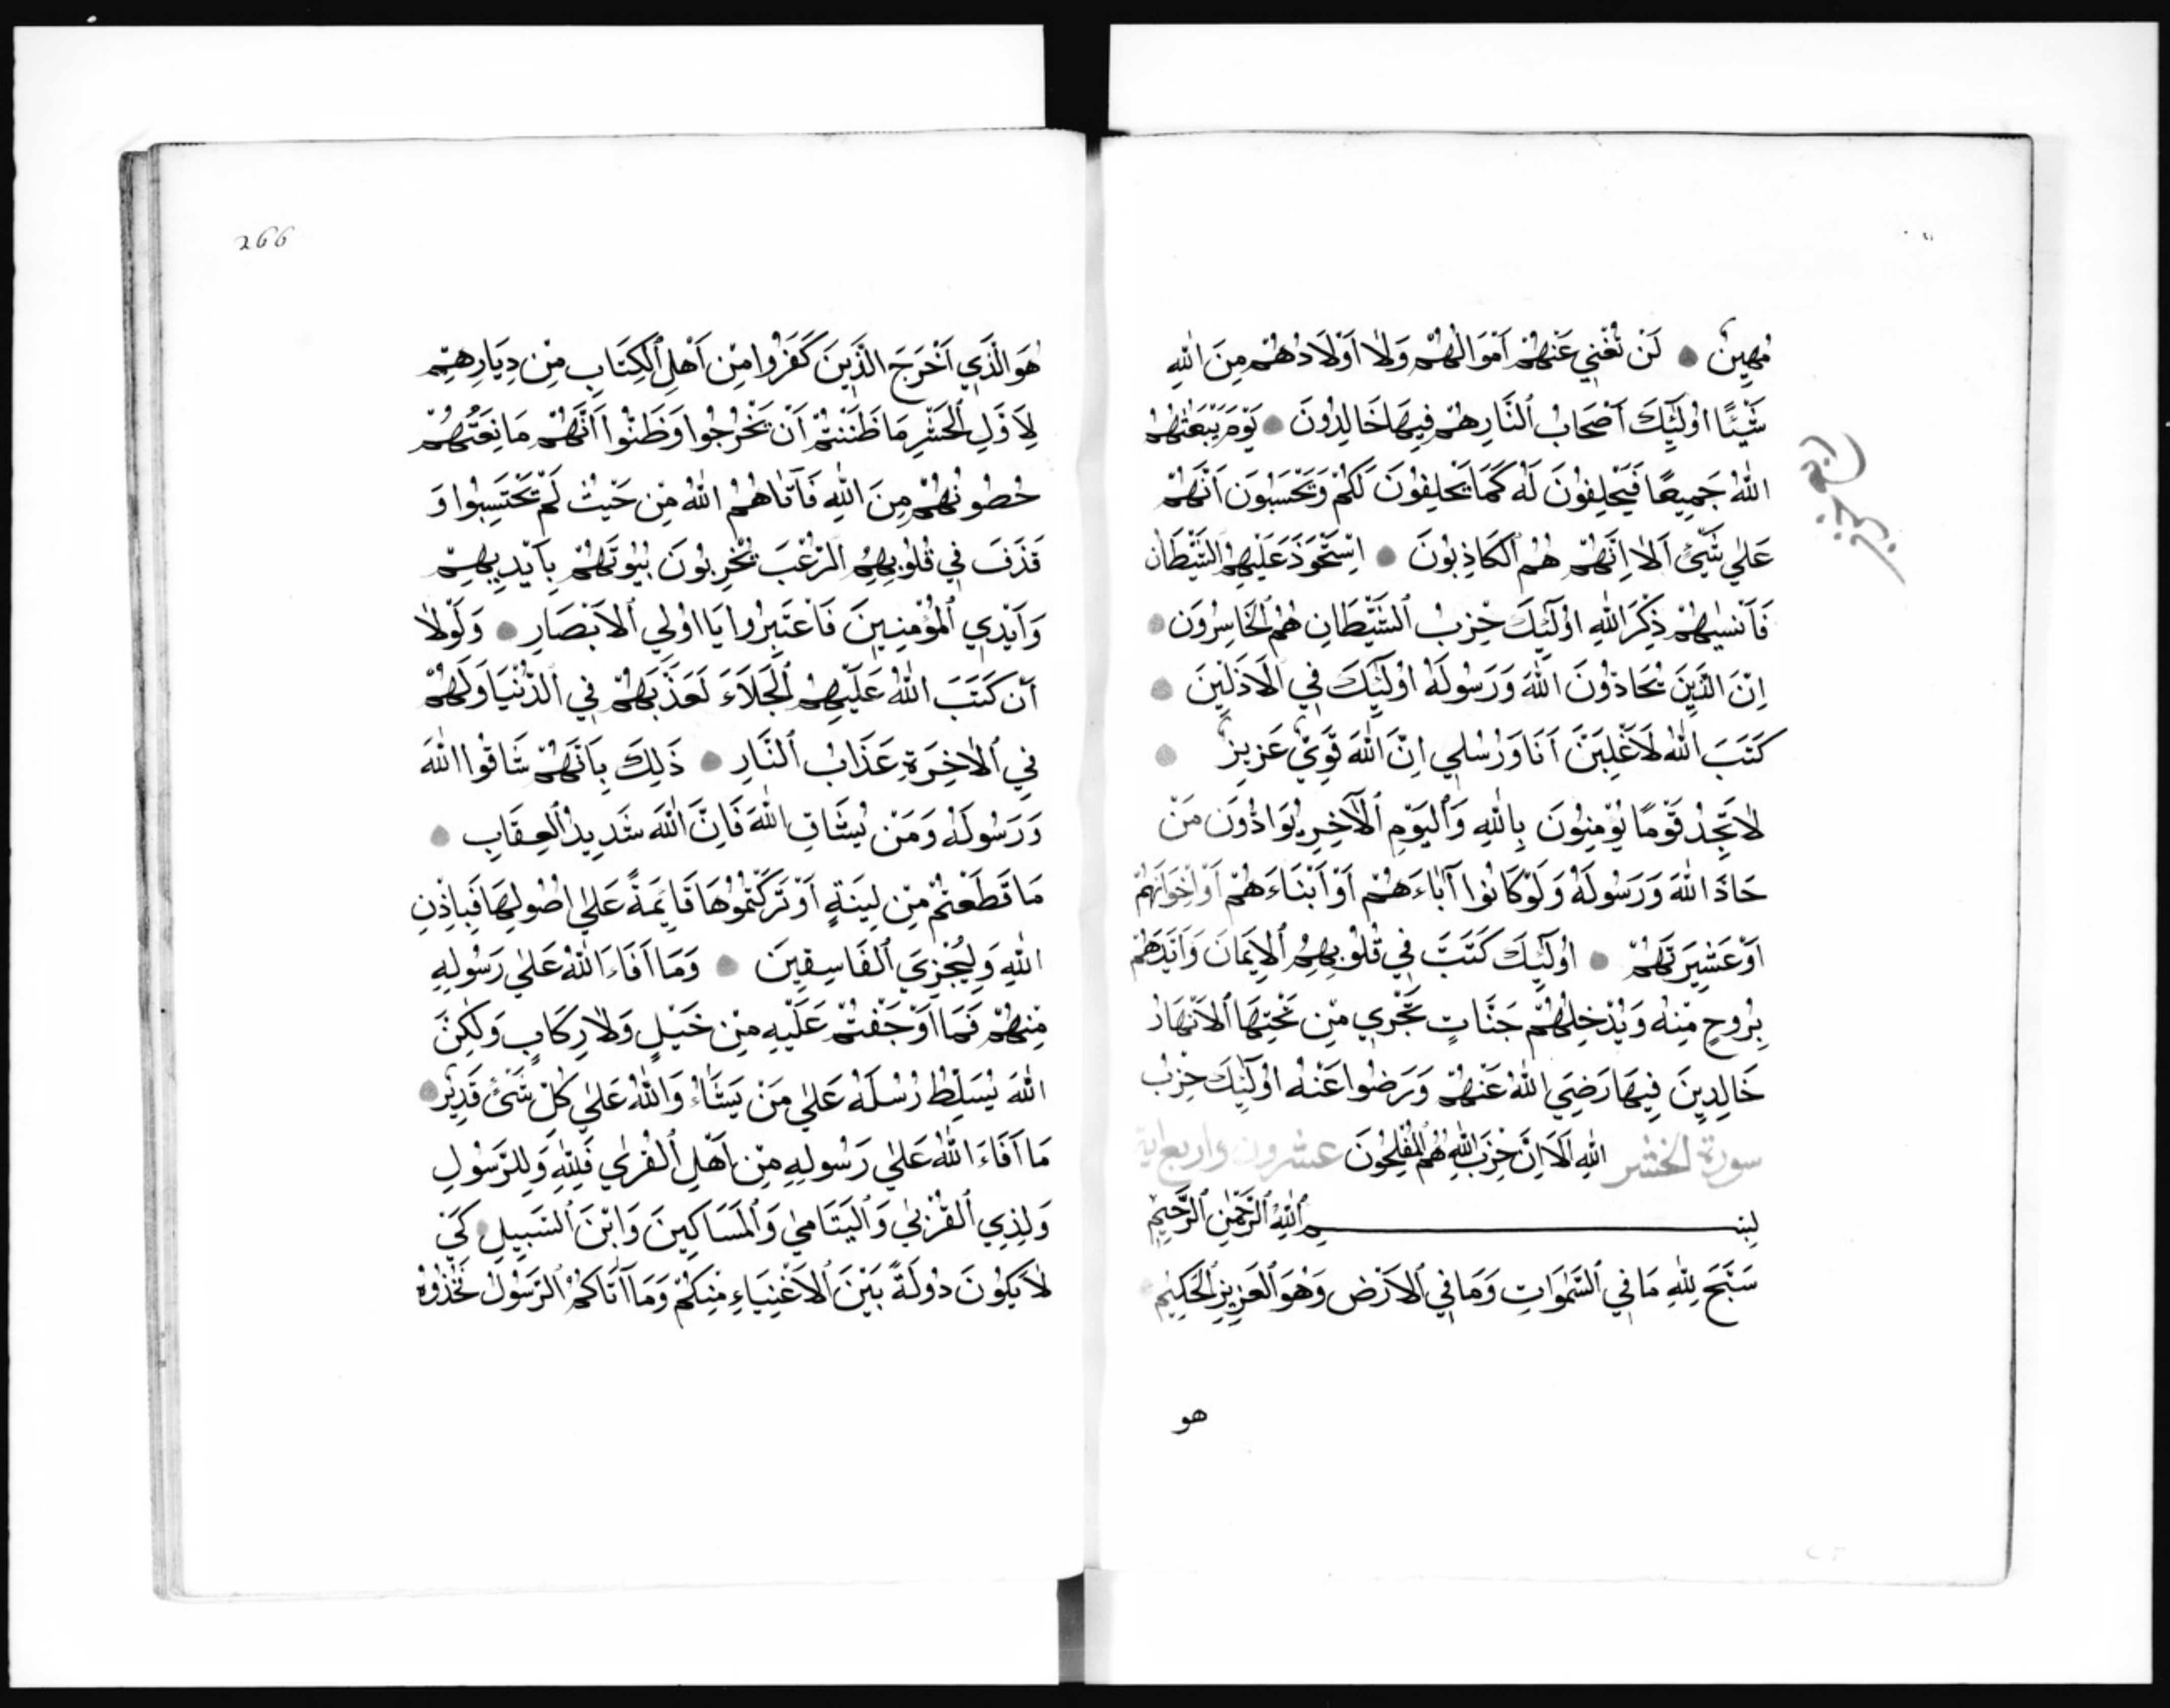 مُهِينٌ لَنْ تُغْنِيَ عَنْهُمْ اَمْوَالُهُمْ وَلَا اَوْلَادُهُمْ مِنَ اللّٰهِ
شَيْئًا اُولٰٓئِكَ اَصْحَابُ النَّارِ هُمْ فِيهَا خَالِدُونَ يَوْمَ يَبْعَثُهُمُ
اللّٰهُ جَمِيعًا فَيَحْلِفُونَ لَهُ كَمَا يَحْلِفُونَ لَكُمْ وَيَحْسَبُونَ اَنَّهُمْ
عَلٰي شَيْئٍ اَلَا اِنَّهُمْ هُمُ الْكَاذِبُونَ اِسْتَحْوَذَ عَلَيْهِمُ الشَّيْطَانُ
فَاَنْسٰيهُمْ ذِكْرَ اللّٰهِ اُولٰٓئِكَ حِزْبُ الشَّيْطَانِ هُمُ الْخَاسِرُونَ
اِنَّ الَّذِينَ يُحَادُّونَ اللّٰهَ وَرَسُولَهُ اُولٰٓئِكَ فِي الْاَذَلِّينَ
كَتَبَ اللّٰهُ لَاَغْلِبَنَّ اَنَا وَرُسُلِي اِنَّ اللّٰهَ قَوِيٌّ عَزِيزٌ
لَا تَجِدُ قَوْمًا يُؤْمِنُونَ بِاللّٰهِ وَالْيَوْمِ الْاٰخِرِ يُوَادُّونَ مَنْ
حَادَّ اللّٰهَ وَرَسُولَهُ وَلَوْ كَانُوا اٰبَاءَهُمْ اَوْ اَبْنَاءَهُمْ اَوْ اِخْوَانَهُمْ
اَوْ عَشِيرَتَهُمْ اُولٰٓئِكَ كَتَبَ فِي قُلُوبِهِمُ الْاِيمَانَ وَاَيَّدَهُمْ
بِرُوحٍ مِنْهُ وَيُدْخِلُهُمْ جَنَّاتٍ تَجْرِي مِنْ تَحْتِهَا الْاَنْهَارُ
خَالِدِينَ فِيهَا رَضِيَ اللّٰهُ عَنْهُمْ وَرَضُوا عَنْهُ اُولٰٓئِكَ حِزْبُ
سورة الحشر اللّٰهِ اَلَا اِنَّ حِزْبَ اللّٰهِ هُمُ الْمُفْلِحُونَ عشرون واربع اية
بِسْمِ اللّٰهِ الرَّحْمٰنِ الرَّحِيمِ
سَبَّحَ لِلّٰهِ مَا فِي السَّمٰوَاتِ وَمَا فِي الْاَرْضِ وَهُوَ الْعَزِيزُ الْحَكِيمُ
هو
266
هُوَ الَّذِي اَخْرَجَ الَّذِينَ كَفَرُوا مِنْ اَهْلِ الْكِتَابِ مِنْ دِيَارِهِمْ
لِاَوَّلِ الْحَشْرِ مَا ظَنَنْتُمْ اَنْ يَخْرُجُوا وَظَنُّوا اَنَّهُمْ مَانِعَتُهُمْ
حُصُونُهُمْ مِنَ اللّٰهِ فَاَتَاهُمُ اللّٰهُ مِنْ حَيْثُ لَمْ يَحْتَسِبُوا وَ
قَذَفَ فِي قُلُوبِهِمُ الرُّعْبَ يُخْرِبُونَ بُيُوتَهُمْ بِاَيْدِيهِمْ
وَاَيْدِي الْمُؤْمِنِينَ فَاعْتَبِرُوا يَا اُولِي الْاَبْصَارِ وَلَوْلَا
اَنْ كَتَبَ اللّٰهُ عَلَيْهِمُ الْجَلَاءَ لَعَذَّبَهُمْ فِي الدُّنْيَا وَلَهُمْ
فِي الْاٰخِرَةِ عَذَابُ النَّارِ ذٰلِكَ بِاَنَّهُمْ شَاقُّوا اللّٰهَ
وَرَسُولَهُ وَمَنْ يُشَاقِّ اللّٰهَ فَاِنَّ اللّٰهَ شَدِيدُ الْعِقَابِ
مَا قَطَعْتُمْ مِنْ لِينَةٍ اَوْ تَرَكْتُمُوهَا قَائِمَةً عَلٰي اُصُولِهَا فَبِاِذْنِ
اللّٰهِ وَلِيُخْزِيَ الْفَاسِقِينَ وَمَا اَفَاءَ اللّٰهُ عَلٰي رَسُولِهِ
مِنْهُمْ فَمَا اَوْجَفْتُمْ عَلَيْهِ مِنْ خَيْلٍ وَلَا رِكَابٍ وَلٰكِنَّ
اللّٰهَ يُسَلِّطُ رُسُلَهُ عَلٰي مَنْ يَشَاءُ وَاللّٰهُ عَلٰي كُلِّ شَيْئٍ قَدِيرٌ
مَا اَفَاءَ اللّٰهُ عَلٰي رَسُولِهِ مِنْ اَهْلِ الْقُرٰي فَلِلّٰهِ وَلِلرَّسُولِ
وَلِذِي الْقُرْبٰي وَالْيَتَامٰي وَالْمَسَاكِينَ وَابْنَ السَّبِيلِ كَيْ
لَا يَكُونَ دُولَةً بَيْنَ الْاَغْنِيَاءِ مِنْكُمْ وَمَا اٰتَاكُمُ الرَّسُولُ فَخُذُوهُ